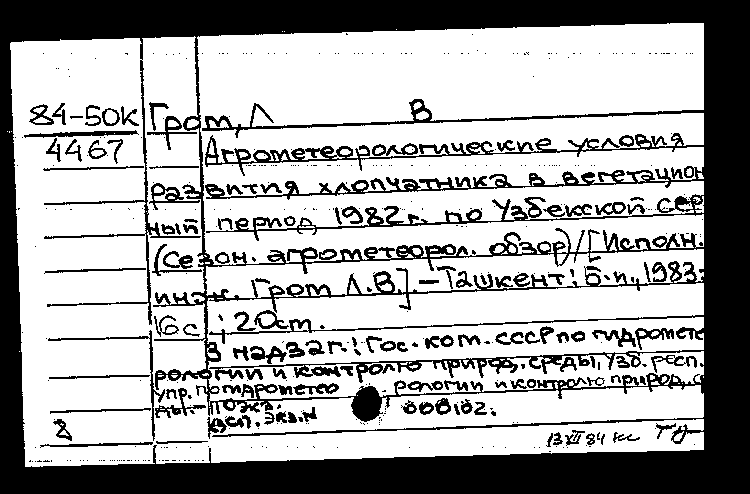 84-50к Гром, Л В
4467 Агрометеорологические условия
развития хлопчатника в вегетацион
ный период 1982г. по Узбекской ССР
(Сезон. агрометеорол. обзор)/[Исполн.
инж. Гром Л.В.].-Ташкент: Б.и., 1983.
16с.; 20см.
В надзаг.: Гос. ком. СССР по гидромете
рологии и контролю природ. среды, Узб. респ.
упр. по гидрометео рологии и контролю природ. с
ды.- 
000102.
2 13 XII 84